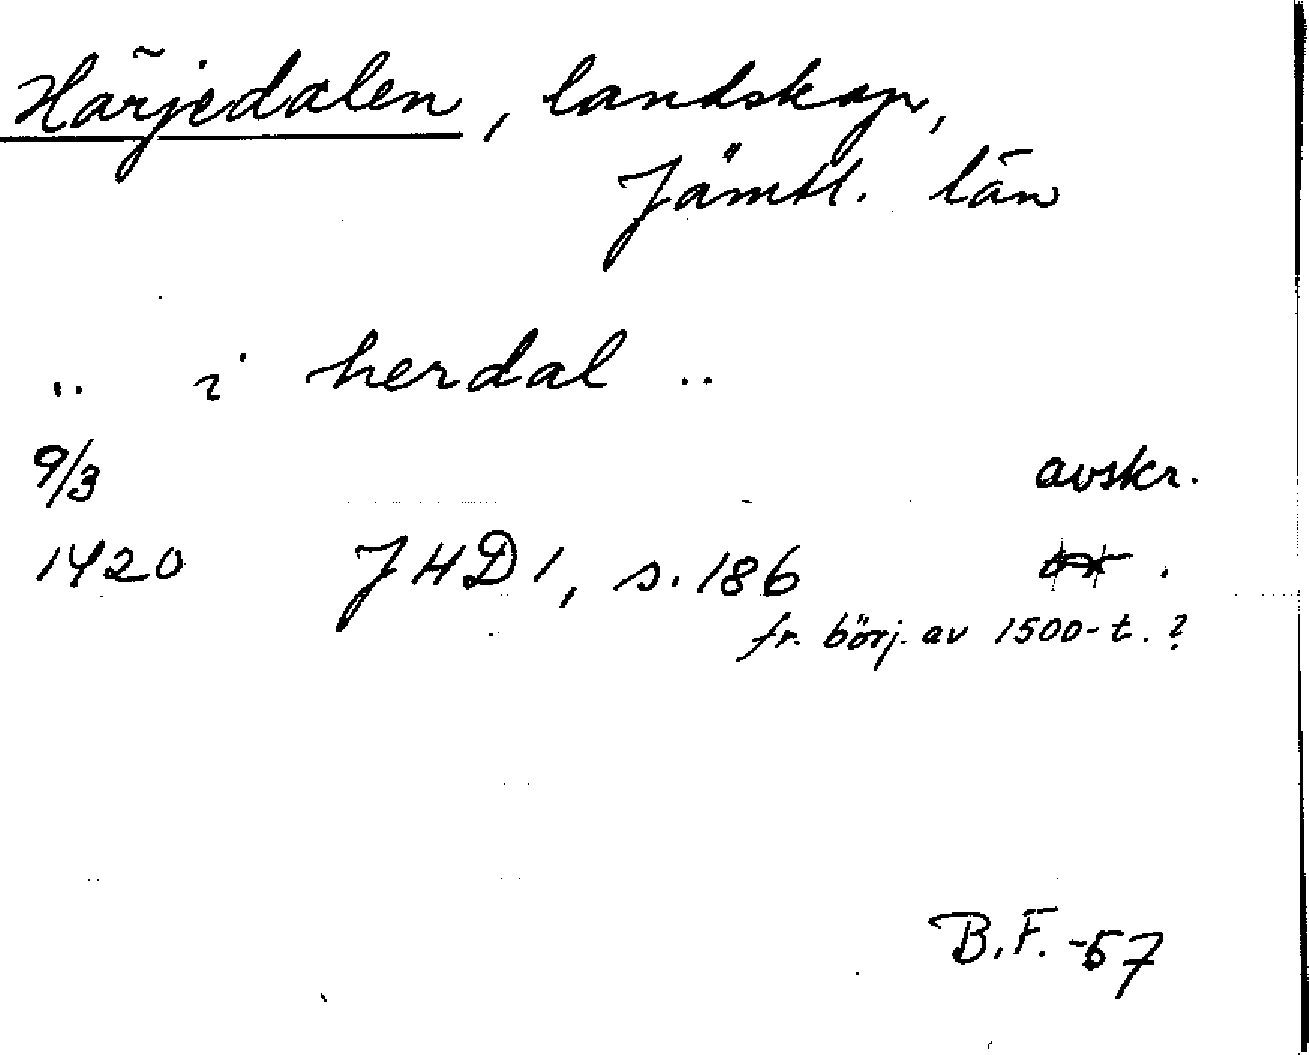 Härjedalen, landskap,
Jämtl. län
.. i herdal ..
9/3 avskr.
1420 JHD 1, s. 186
fr. börj. av 1500-t. ?
B.F. -57